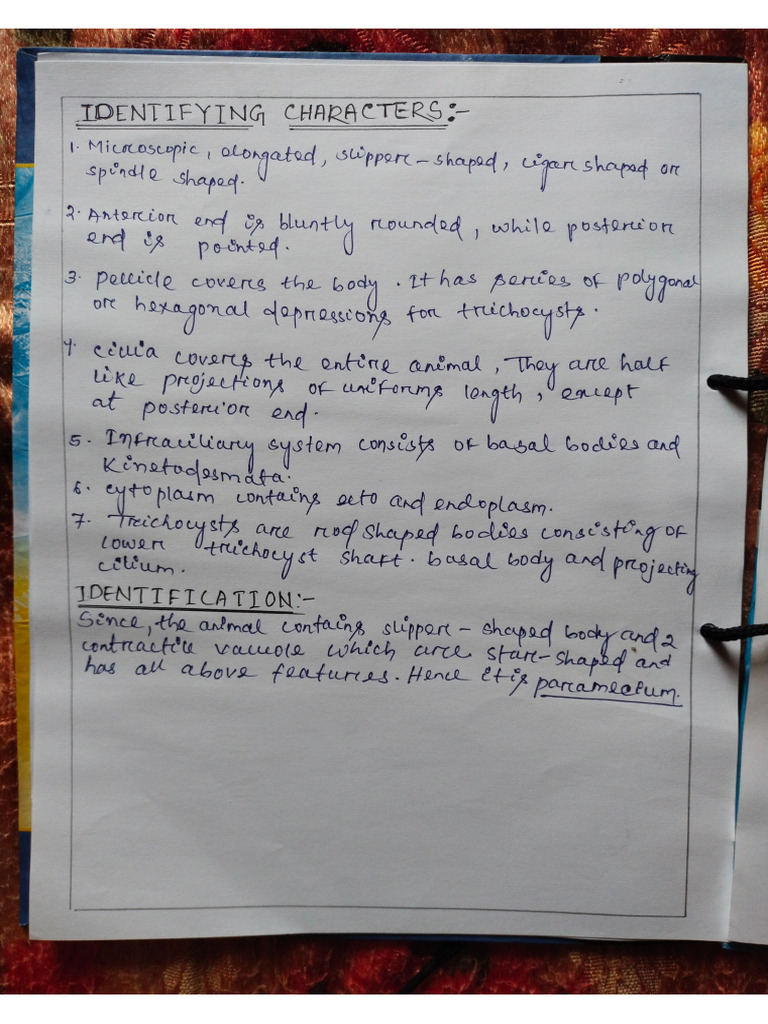 IDENTIFYING CHARACTERS:-
1. Microscopic, elongated, slipper-shaped, cigar shaped or
spindle shaped.
2. Anterior end is bluntly rounded, while posterior
end is pointed.
3. pellicle covers the body. It has series of polygonal
or hexagonal depressions for trichocysts.
4. cilia covers the entire animal, They are half
like projections of uniforms length, except
at posterior end.
5. Infraciliary system consists of basal bodies and
Kinetodesmata.
6. cytoplasm contains ecto and endoplasm.
7. Trichocysts are rod shaped bodies consisting of
lower trichocyst shaft. basal body and projecting
cilium.
IDENTIFICATION:-
Since, the animal contains slipper-shaped body and 2
contractile vacuole which are star-shaped and
has all above features. Hence it is paramecium.